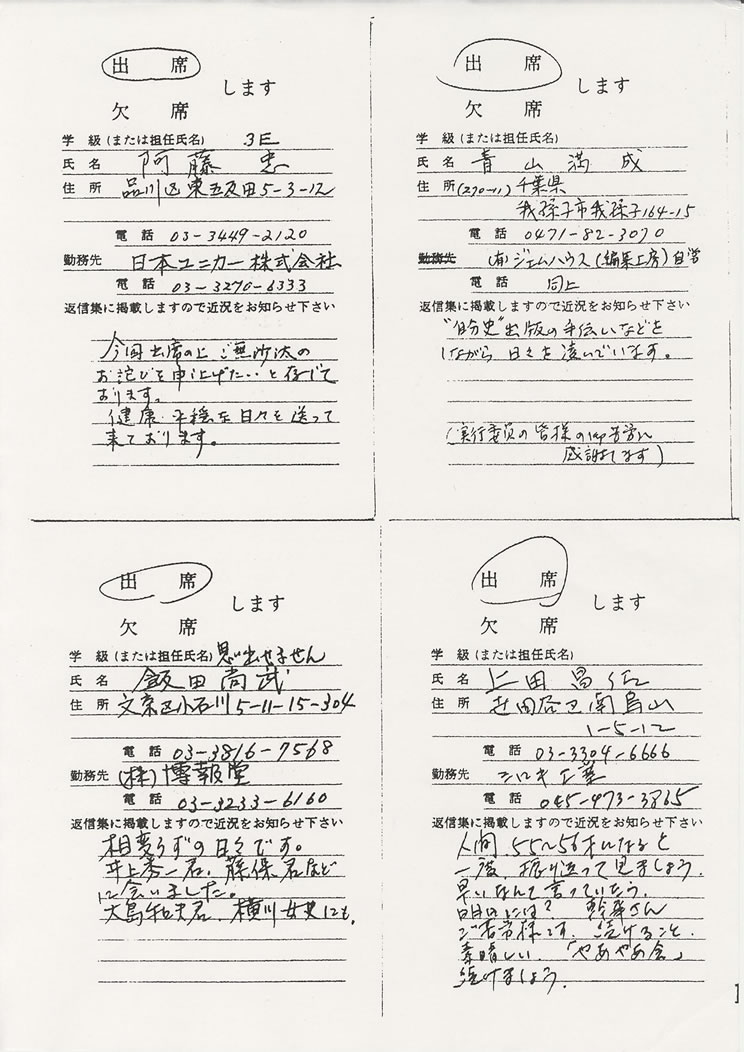 出席
します
欠席
学級(または担任氏名) 3E
氏名 阿藤 忠
住所 品川区東五反田5-3-12
電話 03-3449-2120
勤務先 日本ユニカー株式会社
電話 03-3270-6333
返信集に掲載しますので近況をお知らせ下さい
今回出席の上ご無沙汰の
お詫びを申上げたいと存じて
おります。
健康・平穏な日々を送って
来ております。
出席
します
欠席
学級(または担任氏名)
氏名 青山満成
住所(270-11)千葉県
我孫子市我孫子164-15
電話 0471-82-3070
勤務先 (有)ジェムハウス(編集工房)自営
電話 同上
返信集に掲載しますので近況をお知らせ下さい
"自分史"出版の手伝いなどを
しながら日々を凌いでいます。
(実行委員の皆様の御苦労に
感謝してます)
出席
します
欠席
学級(または担任氏名)思い出せません
氏名 飯田尚武
住所 文京区小石川5-11-15-304
電話 03-3816-7568
勤務先 (株)博報堂
電話 03-3233-6160
返信集に掲載しますので近況をお知らせ下さい
相変らずの日々です。
井上泰一君、藤保君などに
会いました。
大島和夫君、横川女史にも。
出席
します
欠席
学級(または担任氏名)
氏名 上田昌佐
住所 世田谷区南烏山
1-5-12
電話 03-3304-6666
勤務先
電話 045-473-3865
返信集に掲載しますので近況をお知らせ下さい
人間、55〜56才になると
一度、振り返って見ましょう。
早いなんて言っていたら、
幹事さん
ご苦労様です。続けること、
素晴しい。「やあやあ会」
続けましょう。